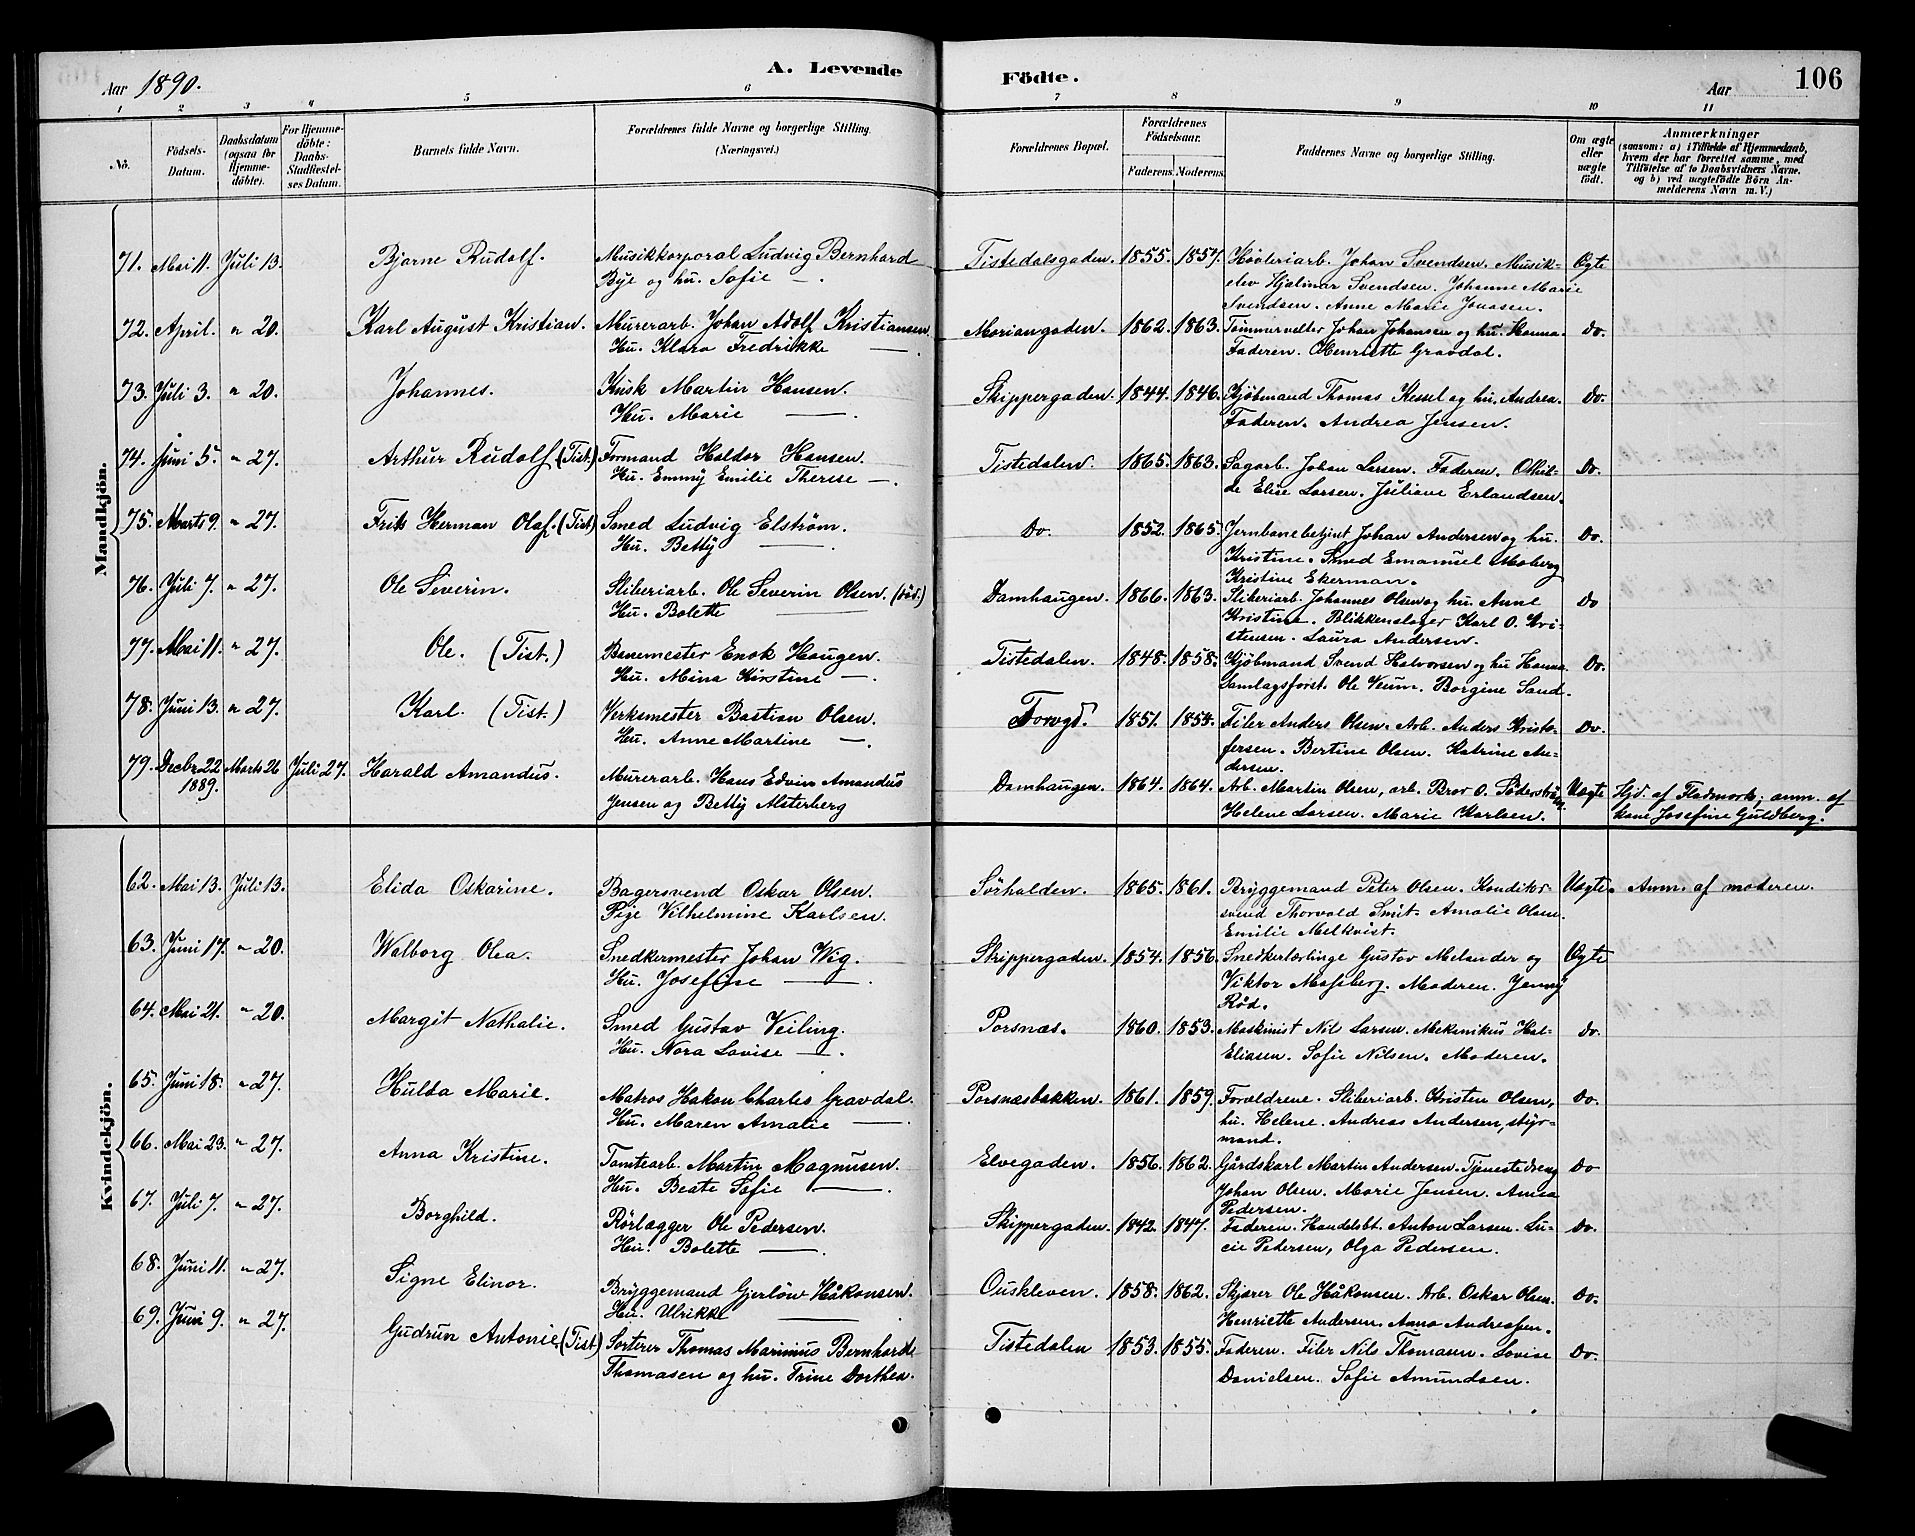 Aar 1890.
A. Levende
Födte.
Aar
106
1 2 3 4 5 6 7 8 9 10 11
No.
Födsels-Datum.
Daabsdatum (ogsaa for Hjemme-döbte).
For Hjemme-döbte: Daabs-Stadfæstel-ses Datum.
Barnets fulde Navn.
Forældrenes fulde Navne og borgerlige Stilling. (Næringsvei.)
Forældrenes Bopæl.
Forældrenes Födselsaar.
Faderens. Moderens.
Faddernes Navne og borgerlige Stilling.
Om ægte eller uægte födt.
Anmærkninger
(saasom: a) i Tilfælde af Hjemmedaab, hvem der har forrettet samme, med Tilföielse af to Daabsvidners Navne, og b) ved uægtefödte Börn Anmelderens Navn m. V.)
Mandkjön.
71. Mai 11. Juli 13. Bjarne Rudolf. Musikkorporal Ludvig Bernhard Tistedalsgaden. 1855. 1857. Høvleriarb. Johan Svendsen. Musik- Ægte
Bye og hu. Sofie —. elev Hjalmar Svendsen. Johanne Marie
Svendsen. Anne Marie Jonasen.
72. April. " 20. Karl August Kristian. Murerarb. Johan Adolf Kristiansen. Moriangaden. 1862. 1863. Tømmervelter Johan Johansen og hu. Hanna. Do.
Hu. Klara Fredrikke —. Faderen. Henriette Gravdal.
73. Juli 3. " 20. Johannes. Kusk Martin Hansen. Skippergaden. 1844. 1846. Kjøbmand Thomas Kessel og hu. Andrea. Do.
Hu. Marie —. Faderen. Andrea Jensen.
74. Juni 5. " 27. Arthur Rudolf. (Tist.) Formand Haldor Hansen. Tistedalen. 1865. 1863. Sagarb. Johan Larsen. Faderen. Othil- Do.
Hu. Emmy Emilie Therese —. de Elise Larsen. Juliane Erlandsen.
75. Marts 9. " 27. Frits Herman Olaf. (Tist.) Smed Ludvig Elström. Do. 1852. 1865. Jernbanebetjent Johan Andersen og hu. Do.
Hu. Betty —. Kristine. Smed Emanuel Moberg
Kristine Ekerman.
76. Juli 7. " 27. Ole Severin. Sliberiarb. Ole Severin Olsen. (död.) Damhaugen. 1866. 1863. Sliberiarb. Johannes Olsen og hu. Anne Do
Hu. Bolette — Kristine. Blikkenslager Karl O. Kri-
stensen. Laura Andersen.
77. Mai 11. " 27. Ole. (Tist.) Banemester Enok Haugen. Tistedalen. 1848. 1858. Kjøbmand Svend Halvorsen og hu Hanna Do.
Hu. Mina Kirstine —. Samlagsforst. Ole Veum. Borgine Sand.
78. Juni 13. " 27. Karl. (Tist.) Verksmester Bastian Olsen. Torvgd. 1851. 1858. Filer Anders Olsen. Arb. Anders Kristo- Do.
Hu. Anne Martine —. fersen. Bertine Olsen. Katrine An-
dersen.
79. Decbr. 22 1889. Marts 26 Juli 27. Harald Amandus. Murerarb. Hans Edvin Amandus Damhaugen. 1864. 1864. Arb. Martin Olsen, arb. Bror O. Söderström. Uægte Hjd. af Fladmork; anm. af
Jensen og Betty Alsterberg Helene Larsen. Marie Karlsen. kone Josefine Guldberg.
Kvindekjön.
62. Mai 13. Juli 13. Elida Oskarine. Bagersvend Oskar Olsen. Sørhalden. 1865. 1861. Bryggemand Peter Olsen. Konditor- Uægte. Anm. af moderen.
Pige Vilhelmine Karlsen. svend Thorvald Smit. Amalie Olsen.
Emilie Melkvist.
63. Juni 17. " 20. Walborg Olea. Snedkermester Johan Wig. Skippergaden. 1854. 1856. Snedkerlærlinge Gustav Melander og Ægte
Hu. Josefine —. Viktor Mosseberg. Moderen. Jenny
Röd.
64. Mai 21. " 20. Margit Nathalie. Smed Gustav Veiling. Porsnæs. 1860. 1853. Maskinist Nils Larsen. Mekanikus Hal- Do.
Hu. Nora Lovise —. Eliasen. Sofie Nilsen. Moderen.
65. Juni 18. " 27. Hulda Marie. Matros Hakon Charles Gravdal. Porsnæsbakken. 1861. 1859. Forældrene. Sliberiarb. Kristen Olsen, Do.
Hu. Maren Amalie —. hu. Helene. Andreas Andersen, styr-
mand.
66. Mai 23. " 27. Anna Kristine. Tomtearb. Martin Magnusen. Elvegaden. 1856. 1862. Gårdskarl Martin Andersen. Tjenestedreng Do
Hu. Beate Sofie —. Johan Olsen. Marie Jensen. Anna
Pedersen.
67. Juli 7. " 27. Borghild. Rörlægger Ole Pedersen. Skippergaden. 1842. 1847. Faderen. Handelsbt. Anton Larsen. Lu- Do.
Hu. Bolette —. cie Pedersen, Olga Pedersen.
68. Juni 11. " 27. Signe Elinor. Bryggemand Gjerløw Håkonsen. Ouskleven. 1858. 1862. Skjærer Ole Håkonsen. Arb. Oskar Olsen. Do.
Hu. Ulrikke —. Henriette Andersen. Anna Andreassen.
69. Juni 9. " 27. Gudrun Antonie. (Tist) Sorterer Thomas Marinius Bernhard Tistedalen 1853. 1855. Faderen. Filer Nils Thomasen. Lovise Do.
Thomasen og hu. Trine Dorthea. Danielsen. Sofie Amundsen.